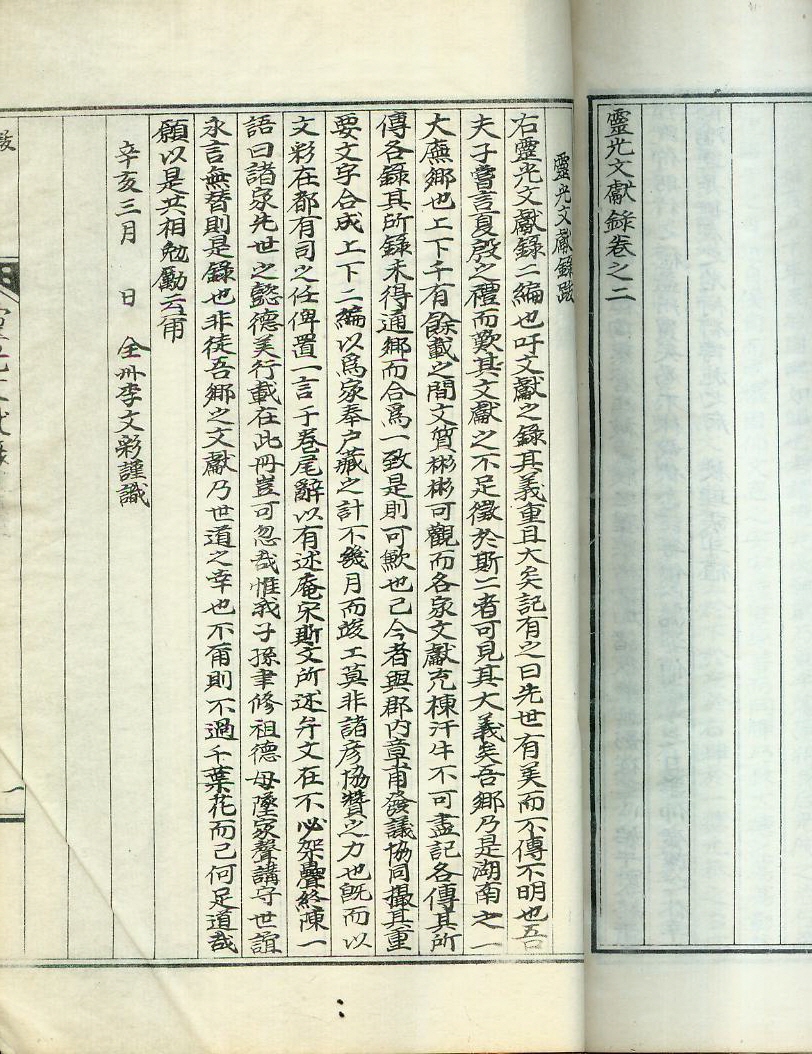 靈光文獻錄卷之二
靈光文獻錄跋
右靈光文獻錄二編也吁文獻之錄其義重且大矣記有之曰先世有美而不傳不明也吾
夫子嘗言夏殷之禮而歎其文獻之不足徵於斯二者可見其大義矣吾鄉乃是湖南之一
大廡鄉也上下千有餘載之間文質彬彬可觀而各家文獻充棟汗牛不可盡記各傳其所
傳各錄其所錄未得通鄉而合爲一致是則可歉也已今者與郡內章甫發議協同撮其重
要文字合成上下二編以爲家奉戶藏之計不幾月而竣工莫非諸彦協贊之力也旣而以
文彩在都有司之任俾置一言于卷尾辭以有述庵宋斯文所述弁文在不必架疊終陳一
語曰諸家先世之懿德美行載在此冊豈可忽哉惟我子孫聿修祖德毋墜家聲講守世誼
永言無替則是錄也非徒吾鄉之文獻乃世道之幸也不甭則不過千葉花而已何足道哉
願以是共相勉勵云甭
辛亥三月 日 全州李文彩謹識